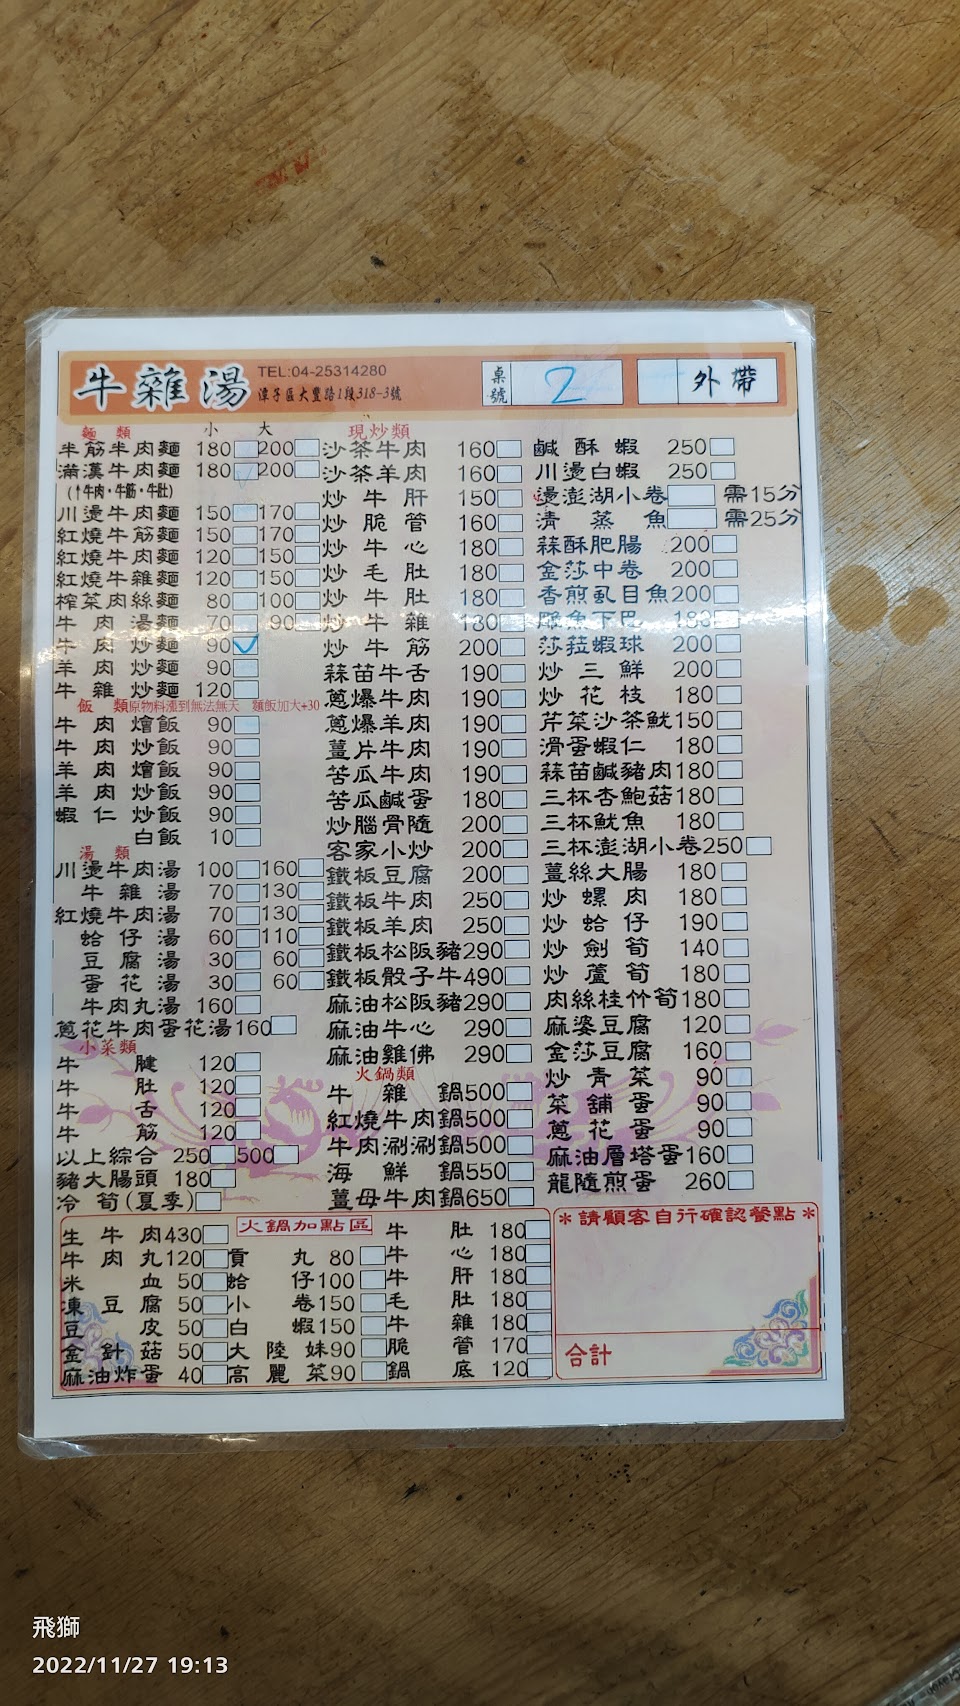 牛雜湯 TEL:04-25314280
潭子區大豐路1段318-3號
桌號 2 外帶
麵類 小 大
半筋半肉麵 180 200
滿漢牛肉麵 180 200
(↑牛肉·牛筋·牛肚)
川燙牛肉麵 150 170
紅燒牛筋麵 150 170
紅燒牛肉麵 120 150
紅燒牛雜麵 120 150
榨菜肉絲麵 80 100
牛肉湯麵 70 90
牛肉炒麵 90 ✓
羊肉炒麵 90
牛雜炒麵 120
飯類 原物料漲到無法無天 麵飯加大+30
牛肉燴飯 90
牛肉炒飯 90
羊肉燴飯 90
羊肉炒飯 90
蝦仁炒飯 90
白飯 10
湯類
川燙牛肉湯 100 160
牛雜湯 70 130
紅燒牛肉湯 70 130
蛤仔湯 60 110
豆腐湯 30 60
蛋花湯 30 60
牛肉丸湯 160
蔥花牛肉蛋花湯 160
小菜類
牛腱 120
牛肚 120
牛舌 120
牛筋 120
以上綜合 250 500
豬大腸頭 180
冷筍(夏季)
現炒類
沙茶牛肉 160
沙茶羊肉 160
炒牛肝 150
炒脆管 160
炒牛心 180
炒毛肚 180
炒牛肚 180
炒牛雜 180
炒牛筋 200
蒜苗牛舌 190
蔥爆牛肉 190
蔥爆羊肉 190
薑片牛肉 190
苦瓜牛肉 190
苦瓜鹹蛋 180
炒腦骨隨 200
客家小炒 200
鐵板豆腐 200
鐵板牛肉 250
鐵板羊肉 250
鐵板松阪豬 290
鐵板骰子牛 490
麻油松阪豬 290
麻油牛心 290
麻油雞佛 290
火鍋類
牛雜鍋 500
紅燒牛肉鍋 500
牛肉涮涮鍋 500
海鮮鍋 550
薑母牛肉鍋 650
鹹酥蝦 250
川燙白蝦 250
燙澎湖小卷 需15分
清蒸魚 需25分
蒜酥肥腸 200
金莎中卷 200
香煎虱目魚 200
下巴 180
莎菈蝦球 200
炒三鮮 200
炒花枝 180
芹菜沙茶魷 150
滑蛋蝦仁 180
蒜苗鹹豬肉 180
三杯杏鮑菇 180
三杯魷魚 180
三杯澎湖小卷 250
薑絲大腸 180
炒螺肉 180
炒蛤仔 190
炒劍筍 140
炒蘆筍 180
肉絲桂竹筍 180
麻婆豆腐 120
金莎豆腐 160
炒青菜 90
菜舖蛋 90
蔥花蛋 90
麻油層塔蛋 160
龍隨煎蛋 260
火鍋加點區
生牛肉 430
牛肉丸 120
米血 50
凍豆腐 50
豆皮 50
金針菇 50
麻油炸蛋 40
貢丸 80
蛤仔 100
小卷 150
白蝦 150
大陸妹 90
高麗菜 90
牛肚 180
牛心 180
牛肝 180
毛肚 180
牛雜 180
脆管 170
鍋底 120
＊請顧客自行確認餐點＊
合計
飛獅
2022/11/27 19:13